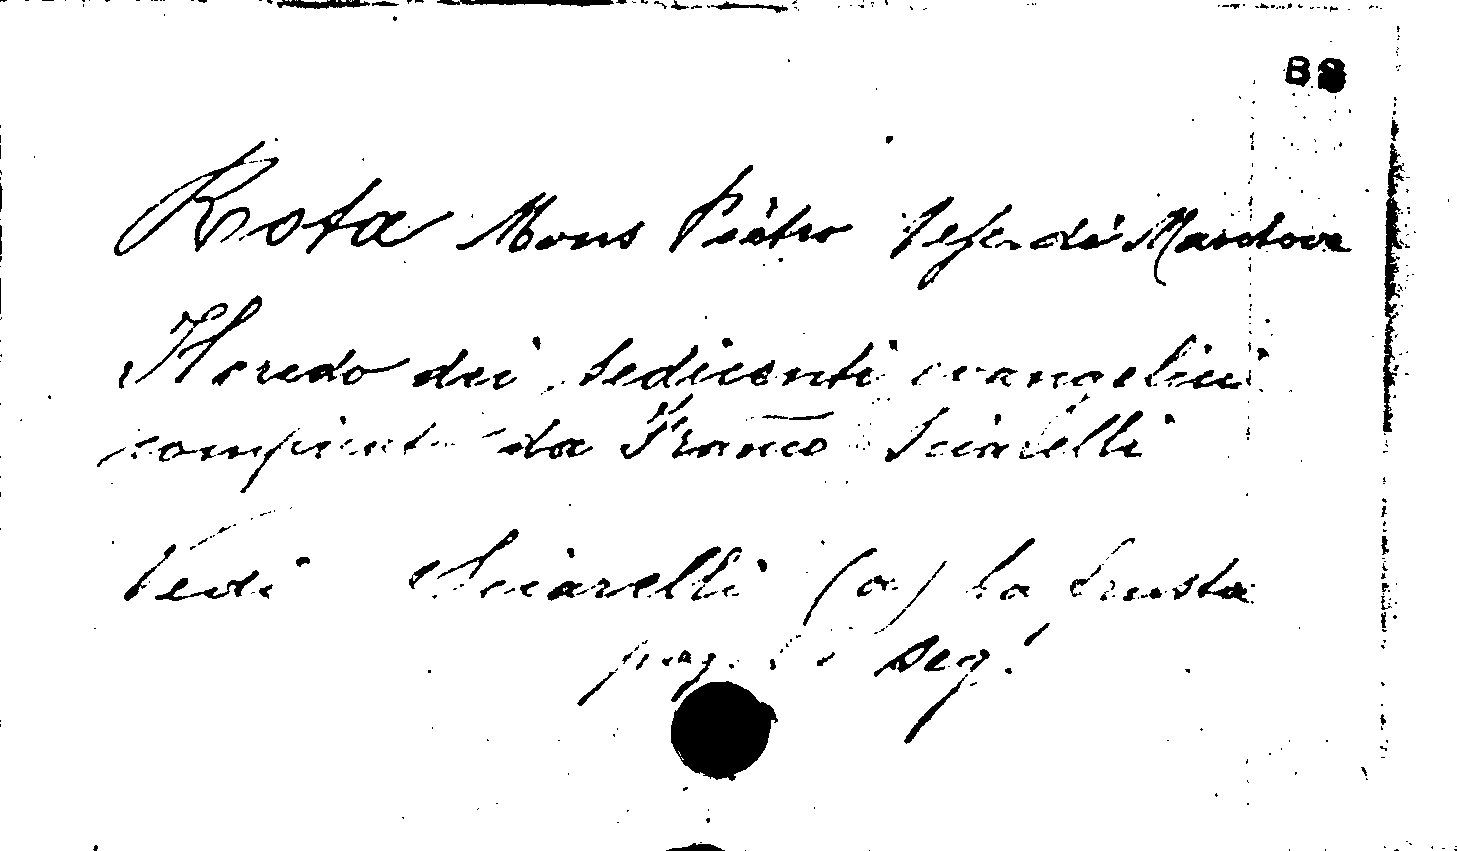 Rota Mons Pietro Vesc. di Mantova
Il credo dei sedicenti evangelici
compicut da Franco Sciarelli
Vedi Sciarelli (a) La frusta
pag. seg.